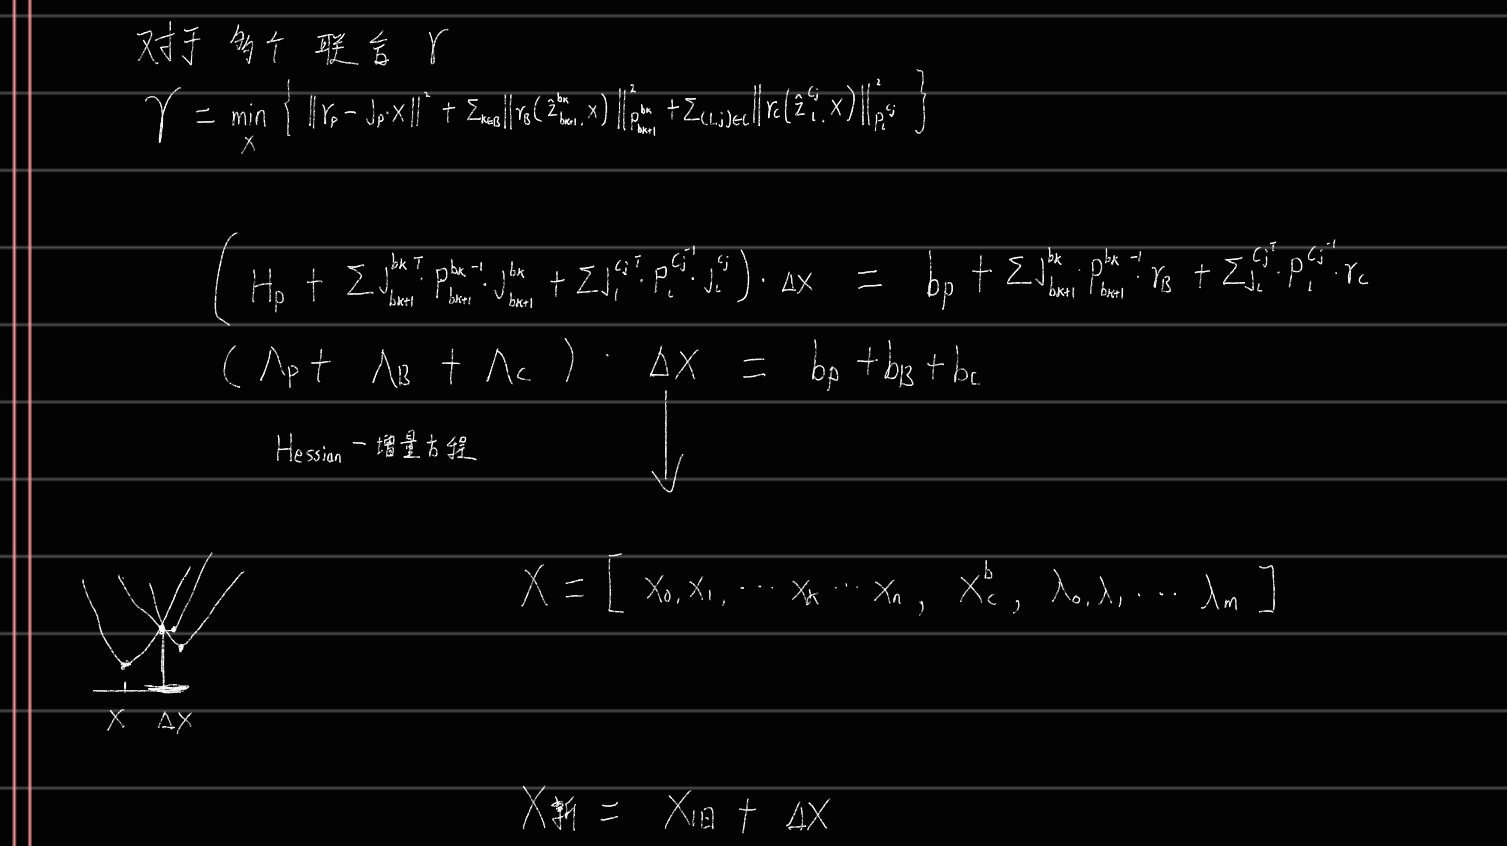 对于多个联合 r
r = min_X { ‖r_p − J_p·X‖² + Σ_{k∈B} ‖r_B(ẑ^{b_k}_{b_{k+1}}, X)‖²_{P^{b_k}_{b_{k+1}}} + Σ_{(i,j)∈C} ‖r_C(ẑ^{C_j}_i, X)‖²_{P^{C_j}_i} }
(H_p + Σ J^{b_k T}_{b_{k+1}} · P^{b_k −1}_{b_{k+1}} · J^{b_k}_{b_{k+1}} + Σ J^{C_j T}_i · P^{C_j −1}_i · J^{C_j}_i) · ΔX = b_p + Σ J^{b_k}_{b_{k+1}} · P^{b_k −1}_{b_{k+1}} · r_B + Σ J^{C_j T}_i · P^{C_j −1}_i · r_C
(Λ_p + Λ_B + Λ_C) · ΔX = b_p + b_B + b_C
Hessian – 增量方程
X = [ x_0, x_1, ⋯ x_k ⋯ x_n, x^b_c, λ_0, λ_1 ⋯ λ_m ]
X ΔX
X新 = X旧 + ΔX